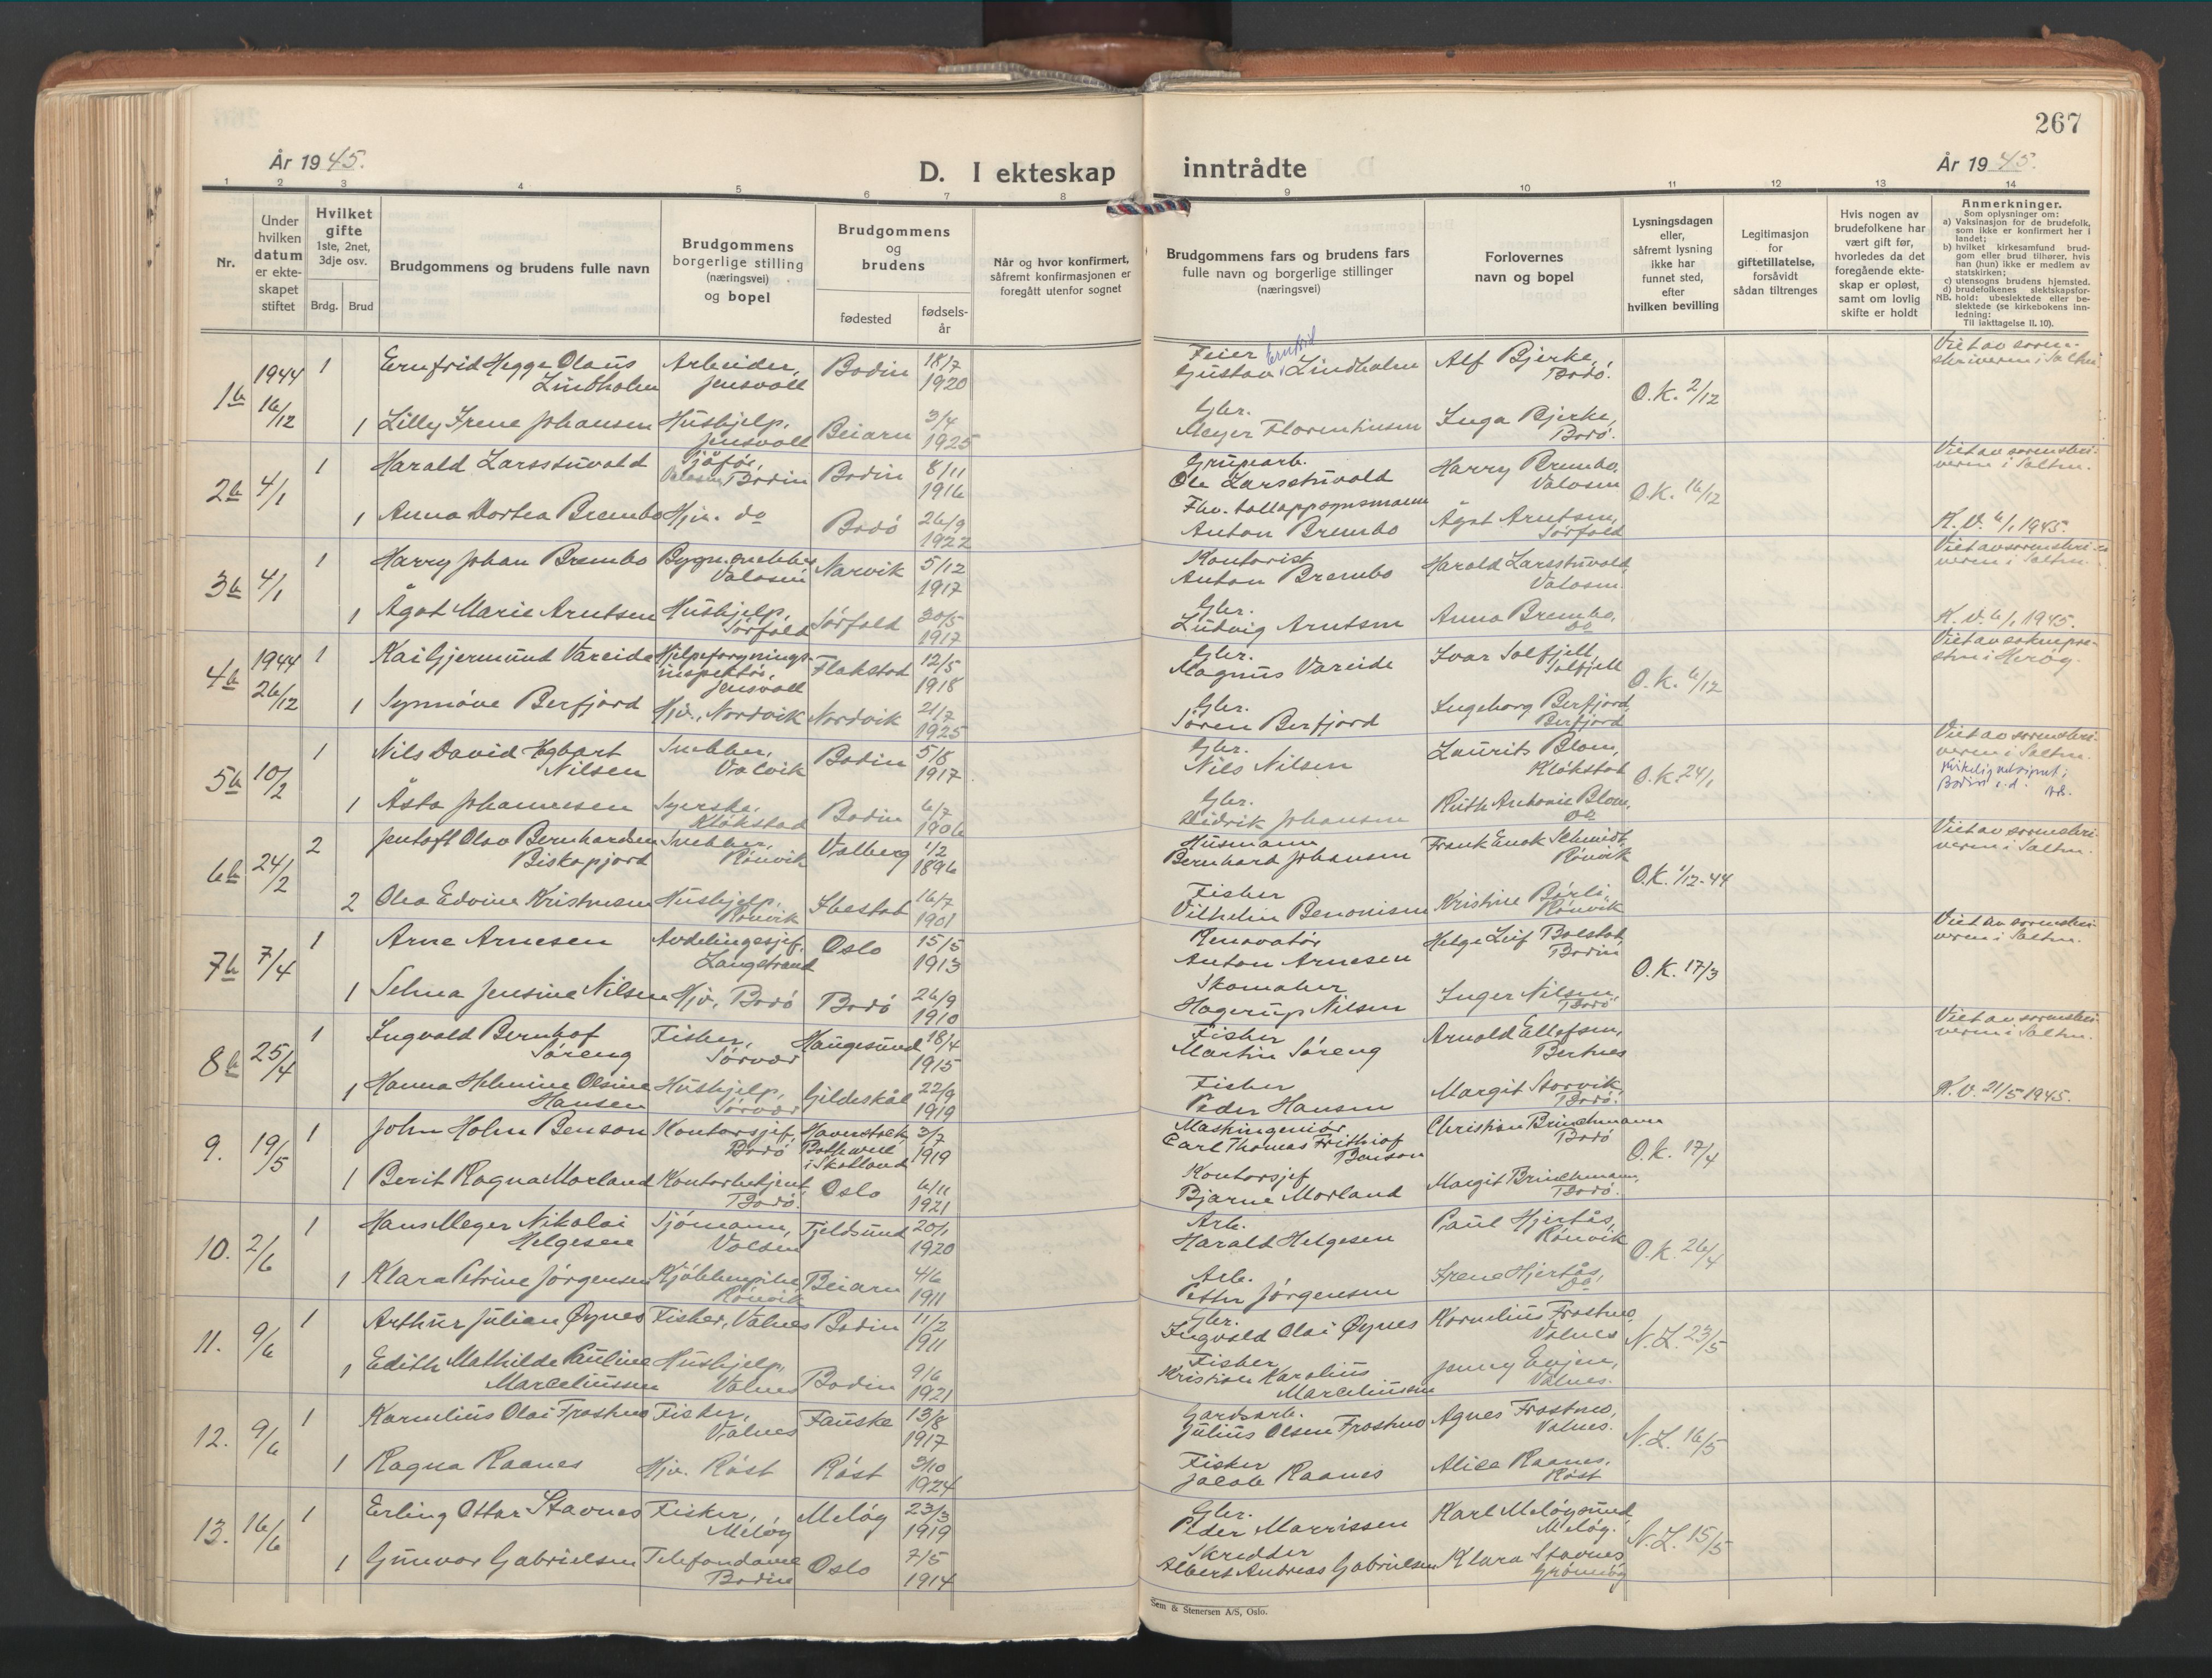 267
År 1945.
D. I ekteskap inntrådte
År 1945.
1 2 3 4 5 6 7 8 9 10 11 12 13 14
Nr.
Under hvilken datum er ekteskapet stiftet
Hvilket gifte 1ste, 2net, 3dje osv.
Brdg. Brud
Brudgommens og brudens fulle navn
Brudgommens borgerlige stilling (næringsvei) og bopel
Brudgommens og brudens
fødested
fødsels-år
Når og hvor konfirmert, såfremt konfirmasjonen er foregått utenfor sognet
Brudgommens fars og brudens fars fulle navn og borgerlige stillinger (næringsvei)
Forlovernes navn og bopel
Lysningsdagen eller, såfremt lysning ikke har funnet sted, efter hvilken bevilling
Legitimasjon for giftetillatelse, forsåvidt sådan tiltrenges
Hvis nogen av brudefolkene har vært gift før, hvorledes da det foregående ekteskap er opløst, samt om lovlig skifte er holdt
Anmerkninger.
Som oplysninger om:
a) Vaksinasjon for de brudefolk, som ikke er konfirmert her i landet;
b) hvilket kirkesamfund brudgom eller brud tilhører, hvis han (hun) ikke er medlem av statskirken;
c) utensogns brudens hjemsted.
d) brudefolkenes slektskapsforhold: ubeslektede eller beslektede (se kirkebokens innledning:
NB.
Til iakttagelse II. 10).
1b 1944 16/12 1 Ernfrid Hegge Olaus Lindholm Arbeider, Jensvoll Bodin 18/7 1920 Feier Gustav Ernfrid Lindholm Alf Bjerke, Bodø. O.K. 2/12 Viet av sorenskriveren i Salten
1 Lilly Irene Johansen Hushjelp, Jensvoll Beiarn 3/4 1925 Gbr. Meyer Florentinsen Inga Bjerke, Bodø.
2b 4/1 1 Harald Larsstuvold Sjåfør, Valosen Bodin Bodin 8/11 1916 Gruvearb. Ole Larsstuvold Harry Brembo, Valosen O.K. 16/12 Viet av sorenskriveren i Salten.
1 Anna Dortea Brembo Hjv. do Bodø 26/9 1922 Fhv. tolloppsynsmann Anton Brembo Ågot Arntsen, Sørfold K.V. 6/1 1945.
3b 4/1 1 Harry Johan Brembo Bygn.snekker Valosen Narvik 5/12 1917 Kontorist Anton Brembo Harald Larsstuvold, Valosen. Viet av sorenskriveren i Salten.
1 Ågot Marie Arntsen Hushjelp, Sørfold Sørfold 30/5 1917 Gbr. Ludvig Arntsen Anna Brembo, do K.V. 6/1 1945.
4b 1944 26/12 1 Kai Gjermund Vareide Hjelpeforsynings-inspektør, Jensvoll Flakstad 12/5 1918 Gbr. Magnus Vareide Ivar Solfjell, Solfjell O.K. 6/12 Viet av soknepresten i Herøy.
1 Synnøve Berfjord Hjv., Nordvik Nordvik 21/7 1925 Gbr. Søren Berfjord Ingeborg Berfjord, Berfjord
5b 10/2 1 Nils David Hagbart Nilsen Snekker, Valvik Bodin 5/8 1917 Gbr. Nils Nilsen Laurits Blom, Kløkstad O.K. 24/1 Viet av sorenskriveren i Salten.
1 Åsta Johannesen Syerske, Kløkstad Bodin 6/7 1906 Gbr. Didrik Johansen Ruth Antonie Blom, do
6b 24/2 2 Jentoft Olav Bernhardsen Biskopjord Snekker, Rønvik Valberg 1/2 1896 Husmann Bernhard Johansen Frank Enok Schmidt, Rønvik O.K. 1/12-44 Viet av sorenskriveren i Salten.
2 Olea Edvine Kristensen Hushjelp, Rønvik Ibestad 16/7 1901 Fisker Vilhelm Benonisen Kristine Børli, Rønvik
7b 7/4 1 Arne Arnesen Avdelingssjef, Langstrand Oslo 15/5 1913 Renovatør Anton Arnesen Helge Leif Bolstad, Bodin O.K. 17/3 Viet av sorenskriveren i Salten.
1 Selma Jensine Nilsen Hjv. Bodø Bodø 26/9 1910 Skomaker Hagerup Nilsen Inger Nilsen, Bodø
8b 25/4 1 Ingvald Bernhof Søreng Fisker, Sørvær Haugesund 18/4 1915 Fisker Martin Søreng Arnold Ellefsen, Bertnes Viet av sorenskriveren i Salten.
1 Hanna Helmine Olsine Hansen Hushjelp, Sørvær Gildeskål 22/9 1919 Fisker Peder Hansen Margit Storvik, Bodø. K.V. 21/5 1945.
9. 19/5 1 John Holm Benson Kontorsjef, Bodø Bothwell i Skotland 3/7 1919 Maskingeniør Carl Thomas Frithiof Benson Christian Brinchmann Bodø O.K. 17/4
1 Berit Ragna Morland Kontorbetjent, Bodø. Oslo 6/11 1921 Kontorsjef Bjarne Morland Margit Brinchmann, Bodø.
10. 2/6 1 Hans Meyer Nikolai Helgesen Sjømann, Volsen Tjeldsund 20/1 1920 Arb. Harald Helgesen Paul Hjertås, Rønvik O.K. 26/4
1 Klara Petrine Jørgensen Kjøkkenpike, Rønvik Beiarn 4/6 1911 Arb. Petter Jørgensen Irene Hjertås, do
11. 9/6 1 Arthur Julian Øynes Fisker, Valnes Bodin 11/2 1911 Gbr. Ingvald Olai Øynes Kornelius Frostmo, Valnes N.L. 23/5
1 Edith Mathilde Pauline Marceliussen Hushjelp, Valnes Bodin 9/6 1921 Fisker Kristian Karolius Marceliussen Jenny Evjen, Valnes.
12. 9/6 1 Kornelius Olai Frostmo Fisker, Valnes Fauske 13/8 1917 Gardsarb. Julius Olsen Frostmo Agnes Frostmo, Valnes. N.L. 16/5
1 Ragna Raanes Hjv. Røst Røst 3/10 1924 Fisker Jacob Raanes Alice Raanes, Røst
13. 16/6 1 Erling Ottar Stavnes Fisker, Meløy Meløy 23/3 1919 Gbr. Peder Marrissen Karl Meløysund, Meløy. N.L. 15/5
1 Gunvor Gabrielsen Telefondame Bodin Oslo 7/5 1914 Skredder Albert Andreas Gabrielsen Klara Stavnes,
Sem & Stenersen A/S, Oslo.